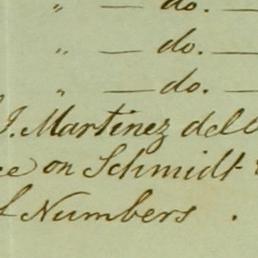 " — do. —
" — do. —
" — do. —
J. Martinez del
on Schmidt
Numbers .